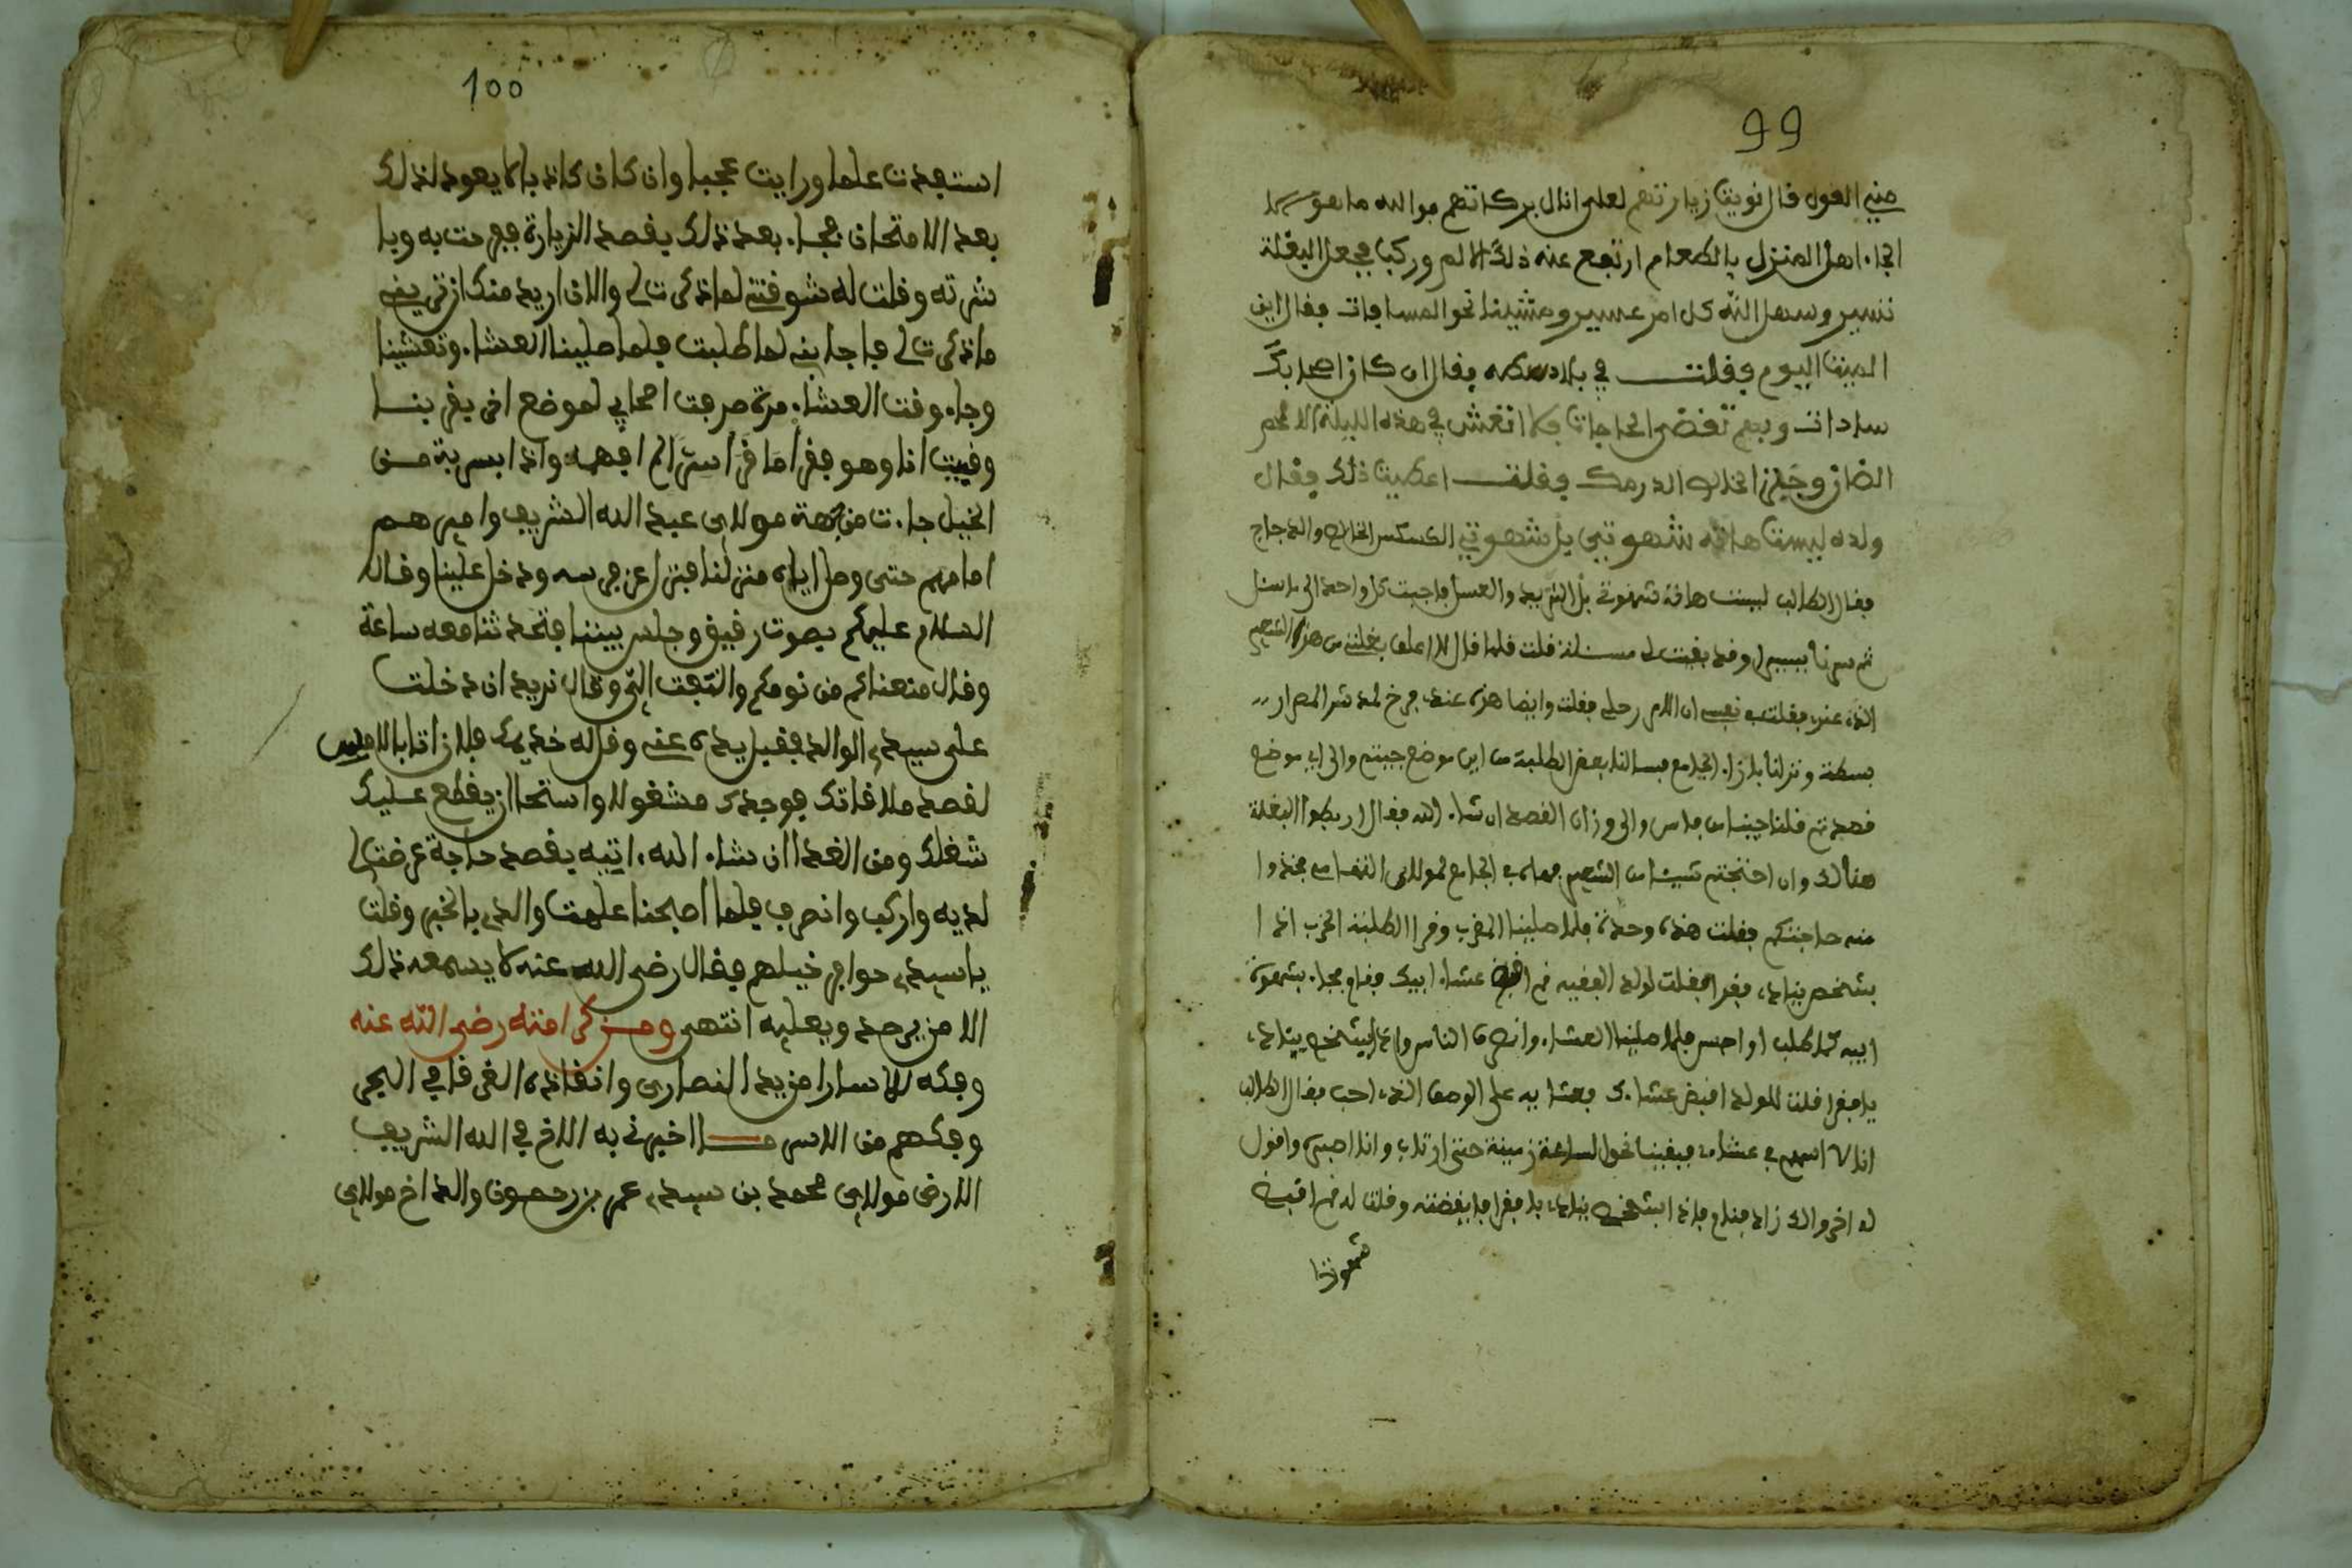 99
مني القول قال نويت زيارتهم لعلى انال بركاتهم فوالله ما هو
الجاء اهل المنزل بالطعام ارتفع عنه ذلك الالم وركبا فجعل البغلة
نسير وسهل الله كل امر عسير ومشينا نحو المسافات فقال اين
المبيت اليوم فقلت في بلاد فقال ان كان اصحابك
سادات وبهم تقضى الحاجات فلا اتعش في هذه الليلة الا لحم
الضان وخبز الخالص الدرمك فقلت اعطيت ذلك فقال
ولده ليست هاته شهوتي بل شهوتي الكسكس الخالص والدجاج
فقال الطالب ليست هاته شهوتي بل الثريد والعسل فاجبت كل واحد الى ما سئل
ثم سرنا وقد بقيت لى مسئلة قلت فلما قال لا اعلف بغلتي من هذا الشعير
الذى عندى فقلت في نفسى ان الامر رحلي فقلت وايضا هذه عنده
ونزلنا بازاء الجامع فسالنا بعض الطلبة من اين موضع جيتم والى اي موضع
قصدتم قلنا جينا من فاس والى وزان القصد ان شاء الله فقال اربطوا البغلة
هنالك وان احتجتم شيئا من الشعير فها في الجامع لمولاى التهامي فخذوا
منه حاجتكم فقلت هذه وحدة فلما صلينا المغرب وقرا الطلبة الحزب اذا
بشخص ينادى يا فقرا فقلت لولد الفقيه قم اقبض عشاء ابيك فقام فجاء بشهوة
ابيه كما طلب او احسن فلما صلينا العشاء وانصرف الناس واذا بشخص ينادى
يا فقرا قلت للولد اقبض عشاءك فعشا به على الوصف الذى احب فقال الطالب
انا لا اسهم في عشاءه فبقينا نحو لساعة زمنية حتى ارتاب وانا اصبره واقول
له اخر والك زاد فنام فاذا بشخص ينادى يا فقرا فايقضته وقلت له قم اقبض
شهوتك
100
استفدت علما ورايت عجبا وان كان كاذبا لا يعود لذلك
بعد الامتحان فجاء بعد ذلك يقصد الزيارة ففرحت به وبا
شرته وقلت له شوقتني لما ذكرت لى والان اريد منك ان تريني
ما ذكرت لى فاجابني لما طلبت فلما صلينا العشاء وتعشينا
وجاء وقت العشاء مرة صرفت اصحابي لموضع اخر يقربنا
وبقيت انا وهو فقرا ما قرا سرا لم افهمه واذا بسربة من
الخيل جاءت من جهة مولاى عبد الله الشريف واميرهم
امامهم حتى وصل اياه منزلنا فنزل عن فرسه ودخل علينا وقال
السلام عليكم بصوت رقيق وجلس بيننا فتحدثنا معه ساعة
وقال منعناكم من نومكم والتفت الي وقال نريد ان دخلت
على سيدى الوالد فقبل يده عني وقل له خديمك فلان اتا بالامس
لقصد ملاقاتك فوجدك مشغولا واستحا ان يقطع عليك
شغلك ومن الغد ان شاء الله اتيه يقصد حاجة عرضت لى
لديه واركب وانصرف فلما اصبحنا علمت والدى بالخبر وقلت
يا سيدى حوافر خيلهم فقال رضى الله عنه لا يسمعه ذلك
الا من يرصد ويعليه انتهى ومن كرامته رضى الله عنه
وفكه للاسارا من يد النصارى وانقاذه الغرقا في البحر
وفكهم من الاسر مما اخبرني به الاخ في الله الشريف
الارضى مولاى محمد بن سيدى عمر بن رحمون والد اخ مولاى